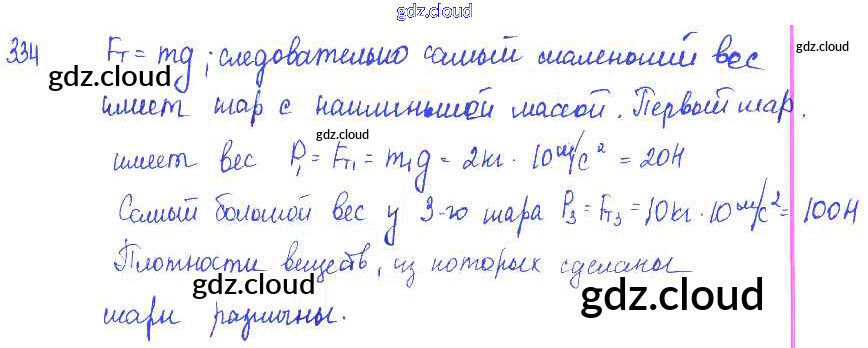 gdz.cloud
334 Fт = mg; следовательно самый маленький вес
gdz.cloud
gdz.cloud
имеет шар с наименьшей массой. Первый шар.
gdz.cloud
имеет вес P₁ = Fт₁ = m₁g = 2кг · 10 м/с² = 20Н
Самый большой вес у 3-го шара P₃ = Fт₃ = 10кг · 10 м/с² = 100Н
gdz.cloud
Плотности веществ, из которых сделаны
gdz.cloud
gdz.cloud
шары различны.